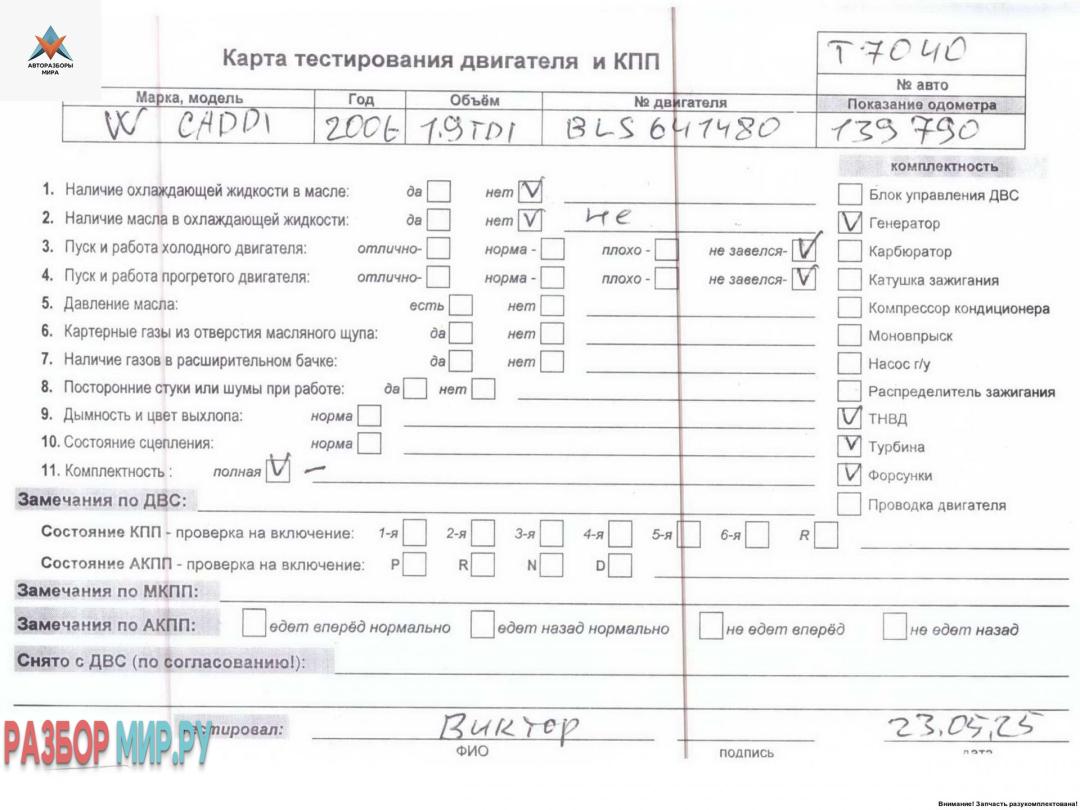 АВТОРАЗБОРЫ
МИРА
Карта тестирования двигателя и КПП
T-7040
№ авто
Марка, модель Год Объём № двигателя Показание одометра
VW CADDI 2006 1.9TDI BLS 641480 139 790
комплектность
1. Наличие охлаждающей жидкости в масле: да нет V
Блок управления ДВС
2. Наличие масла в охлаждающей жидкости: да нет V не
V Генератор
3. Пуск и работа холодного двигателя: отлично- норма - плохо - не завелся- V
Карбюратор
4. Пуск и работа прогретого двигателя: отлично- норма - плохо - не завелся- V
Катушка зажигания
5. Давление масла: есть нет
Компрессор кондиционера
6. Картерные газы из отверстия масляного щупа: да нет
Моновпрыск
7. Наличие газов в расширительном бачке: да нет
Насос г/у
8. Посторонние стуки или шумы при работе: да нет
Распределитель зажигания
9. Дымность и цвет выхлопа: норма
V ТНВД
10. Состояние сцепления: норма
V Турбина
11. Комплектность : полная V –
V Форсунки
Замечания по ДВС:
Проводка двигателя
Состояние КПП - проверка на включение: 1-я 2-я 3-я 4-я 5-я 6-я R
Состояние АКПП - проверка на включение: P R N D
Замечания по МКПП:
Замечания по АКПП: едет вперёд нормально едет назад нормально не едет вперёд не едет назад
Снято с ДВС (по согласованию!):
тестировал: Виктор 23.05.25
ФИО подпись дата
РАЗБОРМИР.РУ
Внимание! Запчасть разукомплектована!